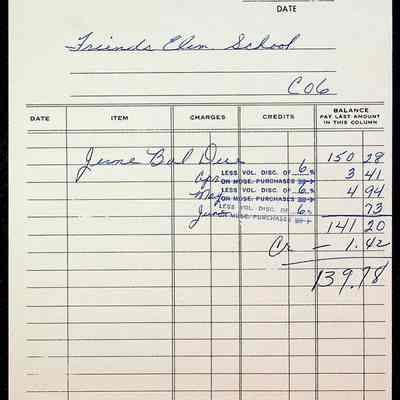 DATE
Friends Elem. School
C06
DATE ITEM CHARGES CREDITS BALANCE
PAY LAST AMOUNT
IN THIS COLUMN
June Bal Due 150 28
Apr LESS VOL. DISC. OF 6 % ON MDSE. PURCHASES 3 41
May LESS VOL. DISC. OF 6 % ON MDSE. PURCHASES 4 94
June LESS VOL. DISC. OF 6 % ON MDSE. PURCHASES 73
141 20
Cr - 1.42
139.78